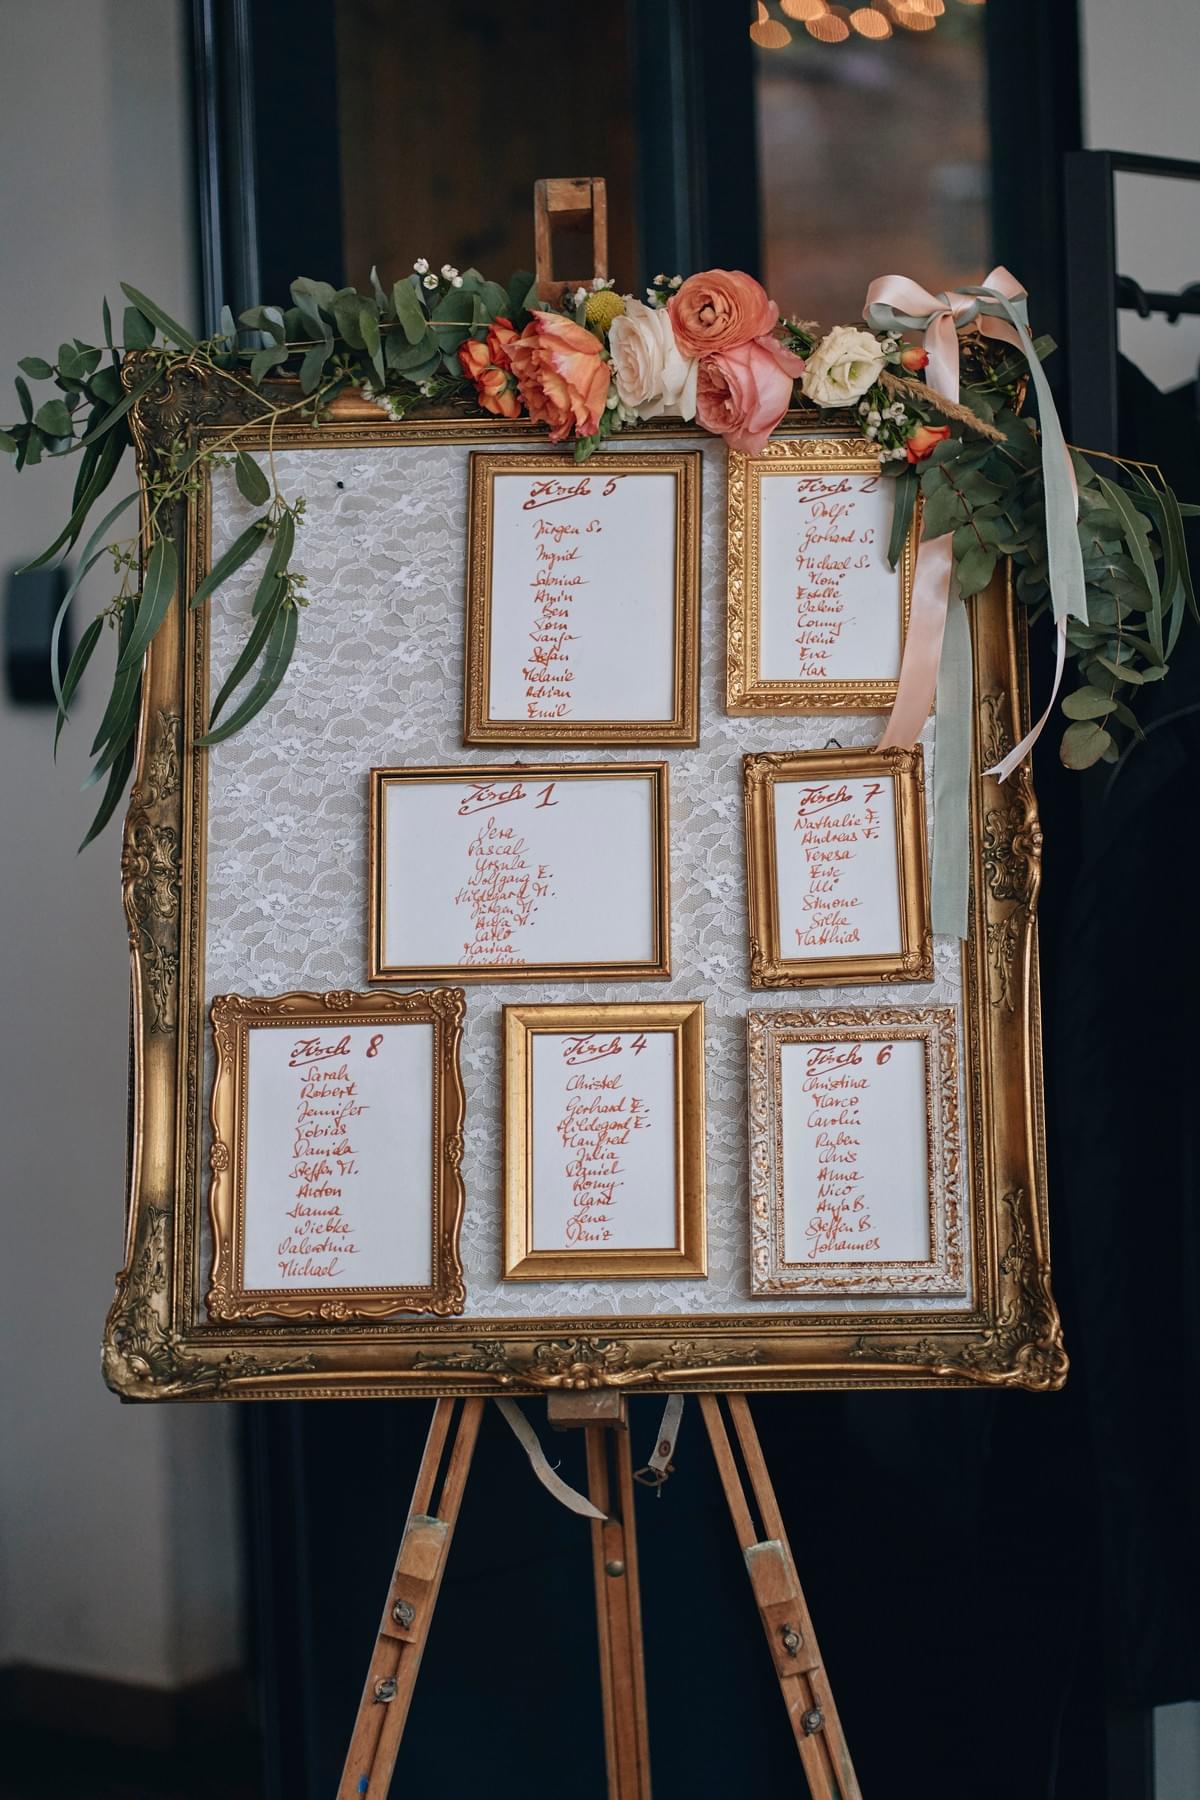 Tisch 5
Jürgen S.
Ingrid
Sabrina
Armin
Ben
Tom
Tanja
Stefan
Melanie
Adrian
Emil
Tisch 2
Dolfi
Gerhard S.
Michael S.
Moni
Estelle
Valerie
Conny
Heinz
Eva
Max
Tisch 1
Vera
Pascal
Ursula
Wolfgang E.
Hildegard M.
Jürgen M.
Anja M.
Carlo
Marina
Christian
Tisch 7
Nathalie F.
Andreas F.
Teresa
Uli
Simone
Silke
Matthias
Tisch 8
Sarah
Robert
Jennifer
Tobias
Daniela
Steffen M.
Anton
Hanna
Wiebke
Valentina
Michael
Tisch 4
Christel
Gerhard E.
Hildegard E.
Manfred
Julia
Daniel
Romy
Clara
Lena
Deniz
Tisch 6
Christina
Marco
Carolin
Ruben
Chris
Anna
Nico
Anja B.
Steffen B.
Johannes